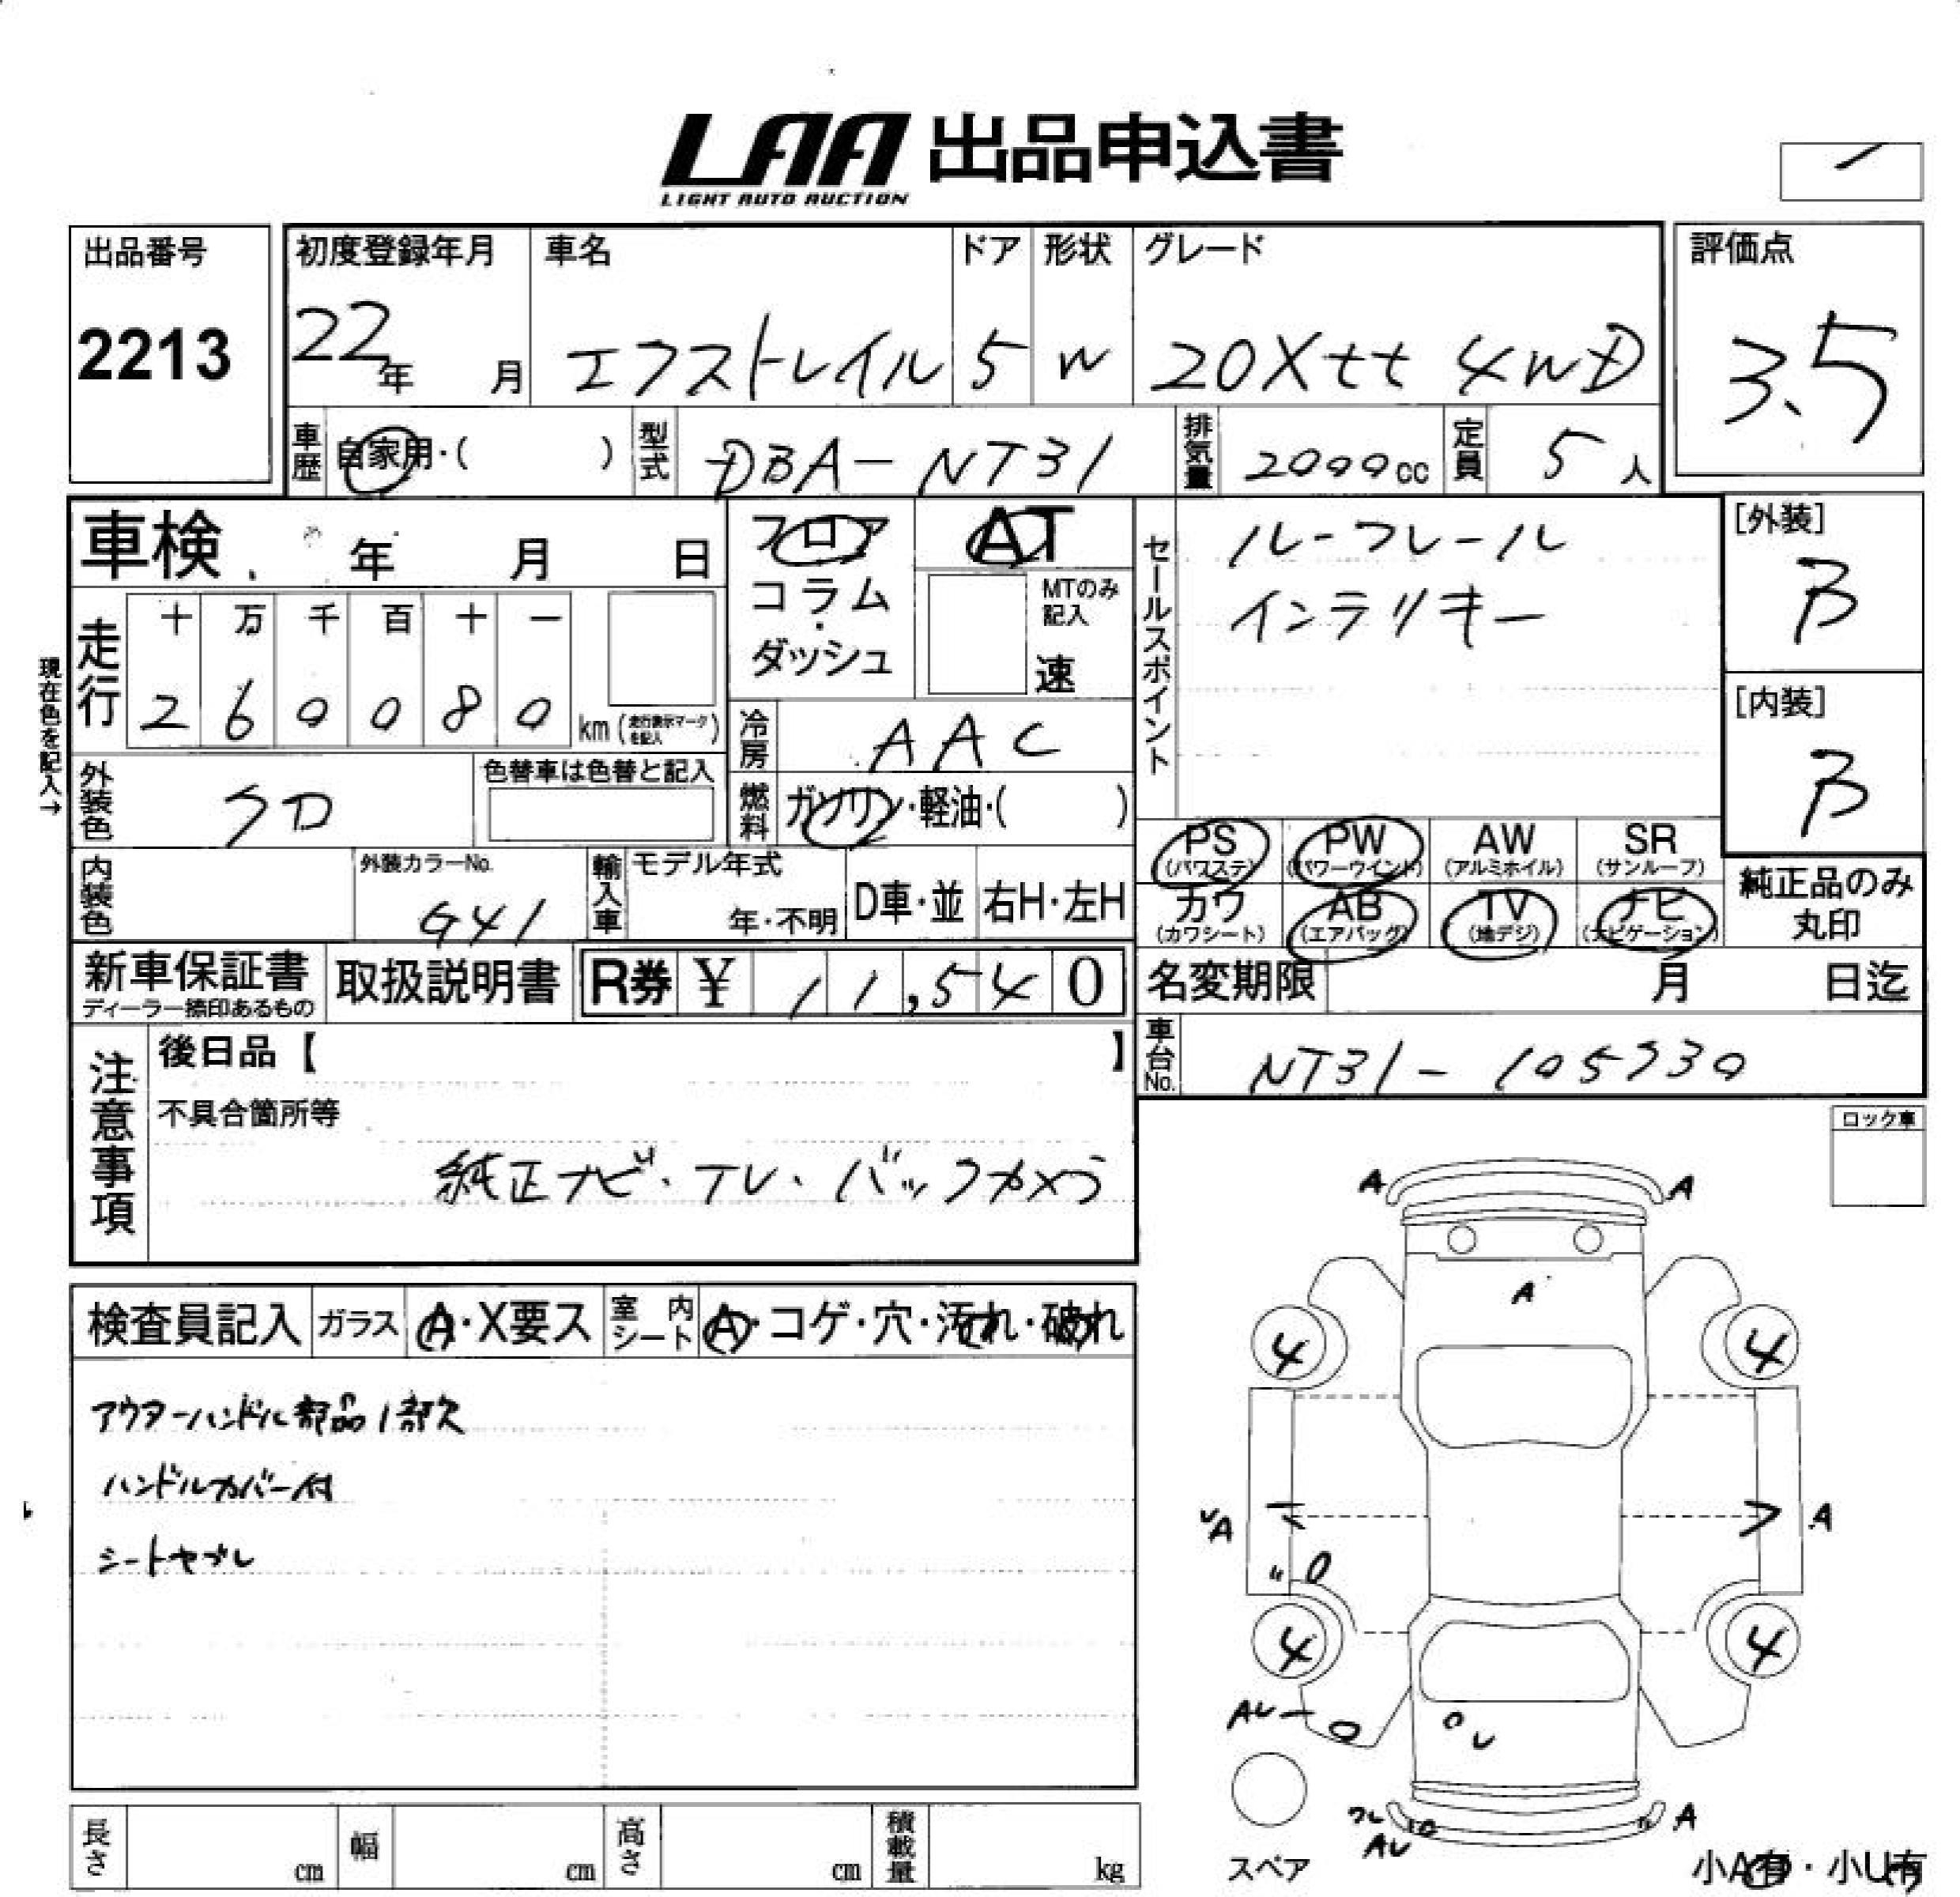 LAA 出品申込書
LIGHT AUTO AUCTION
出品番号
2213
初度登録年月
22年 月
車名
エクストレイル
ドア
5
形状
W
グレード
20Xtt 4WD
評価点
3.5
車歴 自家用・( )
型式 DBA-NT31
排気量 2000cc
定員 5人
車検 年 月 日
フロア
コラム
・
ダッシュ
AT
MTのみ
記入
速
セールスポイント
ルーフレール
インテリキー
[外装]
B
[内装]
B
現在色を記入→
走行
十 万 千 百 十 一
2 6 0 0 8 0 km (走行表示マークを記入)
冷房 AAC
外装色 クロ
色替車は色替と記入
燃料 ガソリン・軽油・( )
内装色
外装カラーNo.
G41
輸入車 モデル年式
年・不明
D車・並 右H・左H
PS
(パワステ)
PW
(パワーウインド)
AW
(アルミホイル)
SR
(サンルーフ)
カワ
(カワシート)
AB
(エアバッグ)
TV
(地デジ)
ナビ
(ナビゲーション)
純正品のみ
丸印
新車保証書
ディーラー捺印あるもの
取扱説明書
R券 ¥ 11,540
名変期限 月 日迄
車台No. NT31-105730
注意事項
後日品【 】
不具合箇所等
純正ナビ・テレ・バックカメラ
ロック車
検査員記入 ガラス A・X要ス 室内シート A・コゲ・穴・汚れ・破れ
アウターハンドル部品1部欠
ハンドルカバー付
シートヤブレ
A A
A
4 4
A A
4 4
AU
U
ワレ
AU
A
スペア
小A有・小U有
長さ cm 幅 cm 高さ cm 積載量 kg